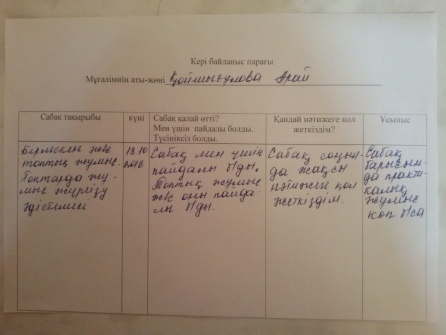 Кері байланыс парағы
Мұғалімнің аты-жөні Қоймшығұлова Арай
Сабақ тақырыбы
күні
Сабақ қалай өтті?
Мен үшін пайдалы болды.
Түсініксіз болды.
Қандай нәтижеге қол
жеткіздім?
Ұсыныс
және
топтық жұмыс.
Топтарда жұ-
мыс жүргізу
әдістемесі
18.10
2018
Сабақ мен үшін
пайдалы болды.
Топтық жұмыс
және оның пайда-
лы болды.
Сабақ соңын-
да жақсы
нәтижеге қол
жеткіздім.
Сабақ
барысын-
да практи-
калық
жұмыс
көп болса